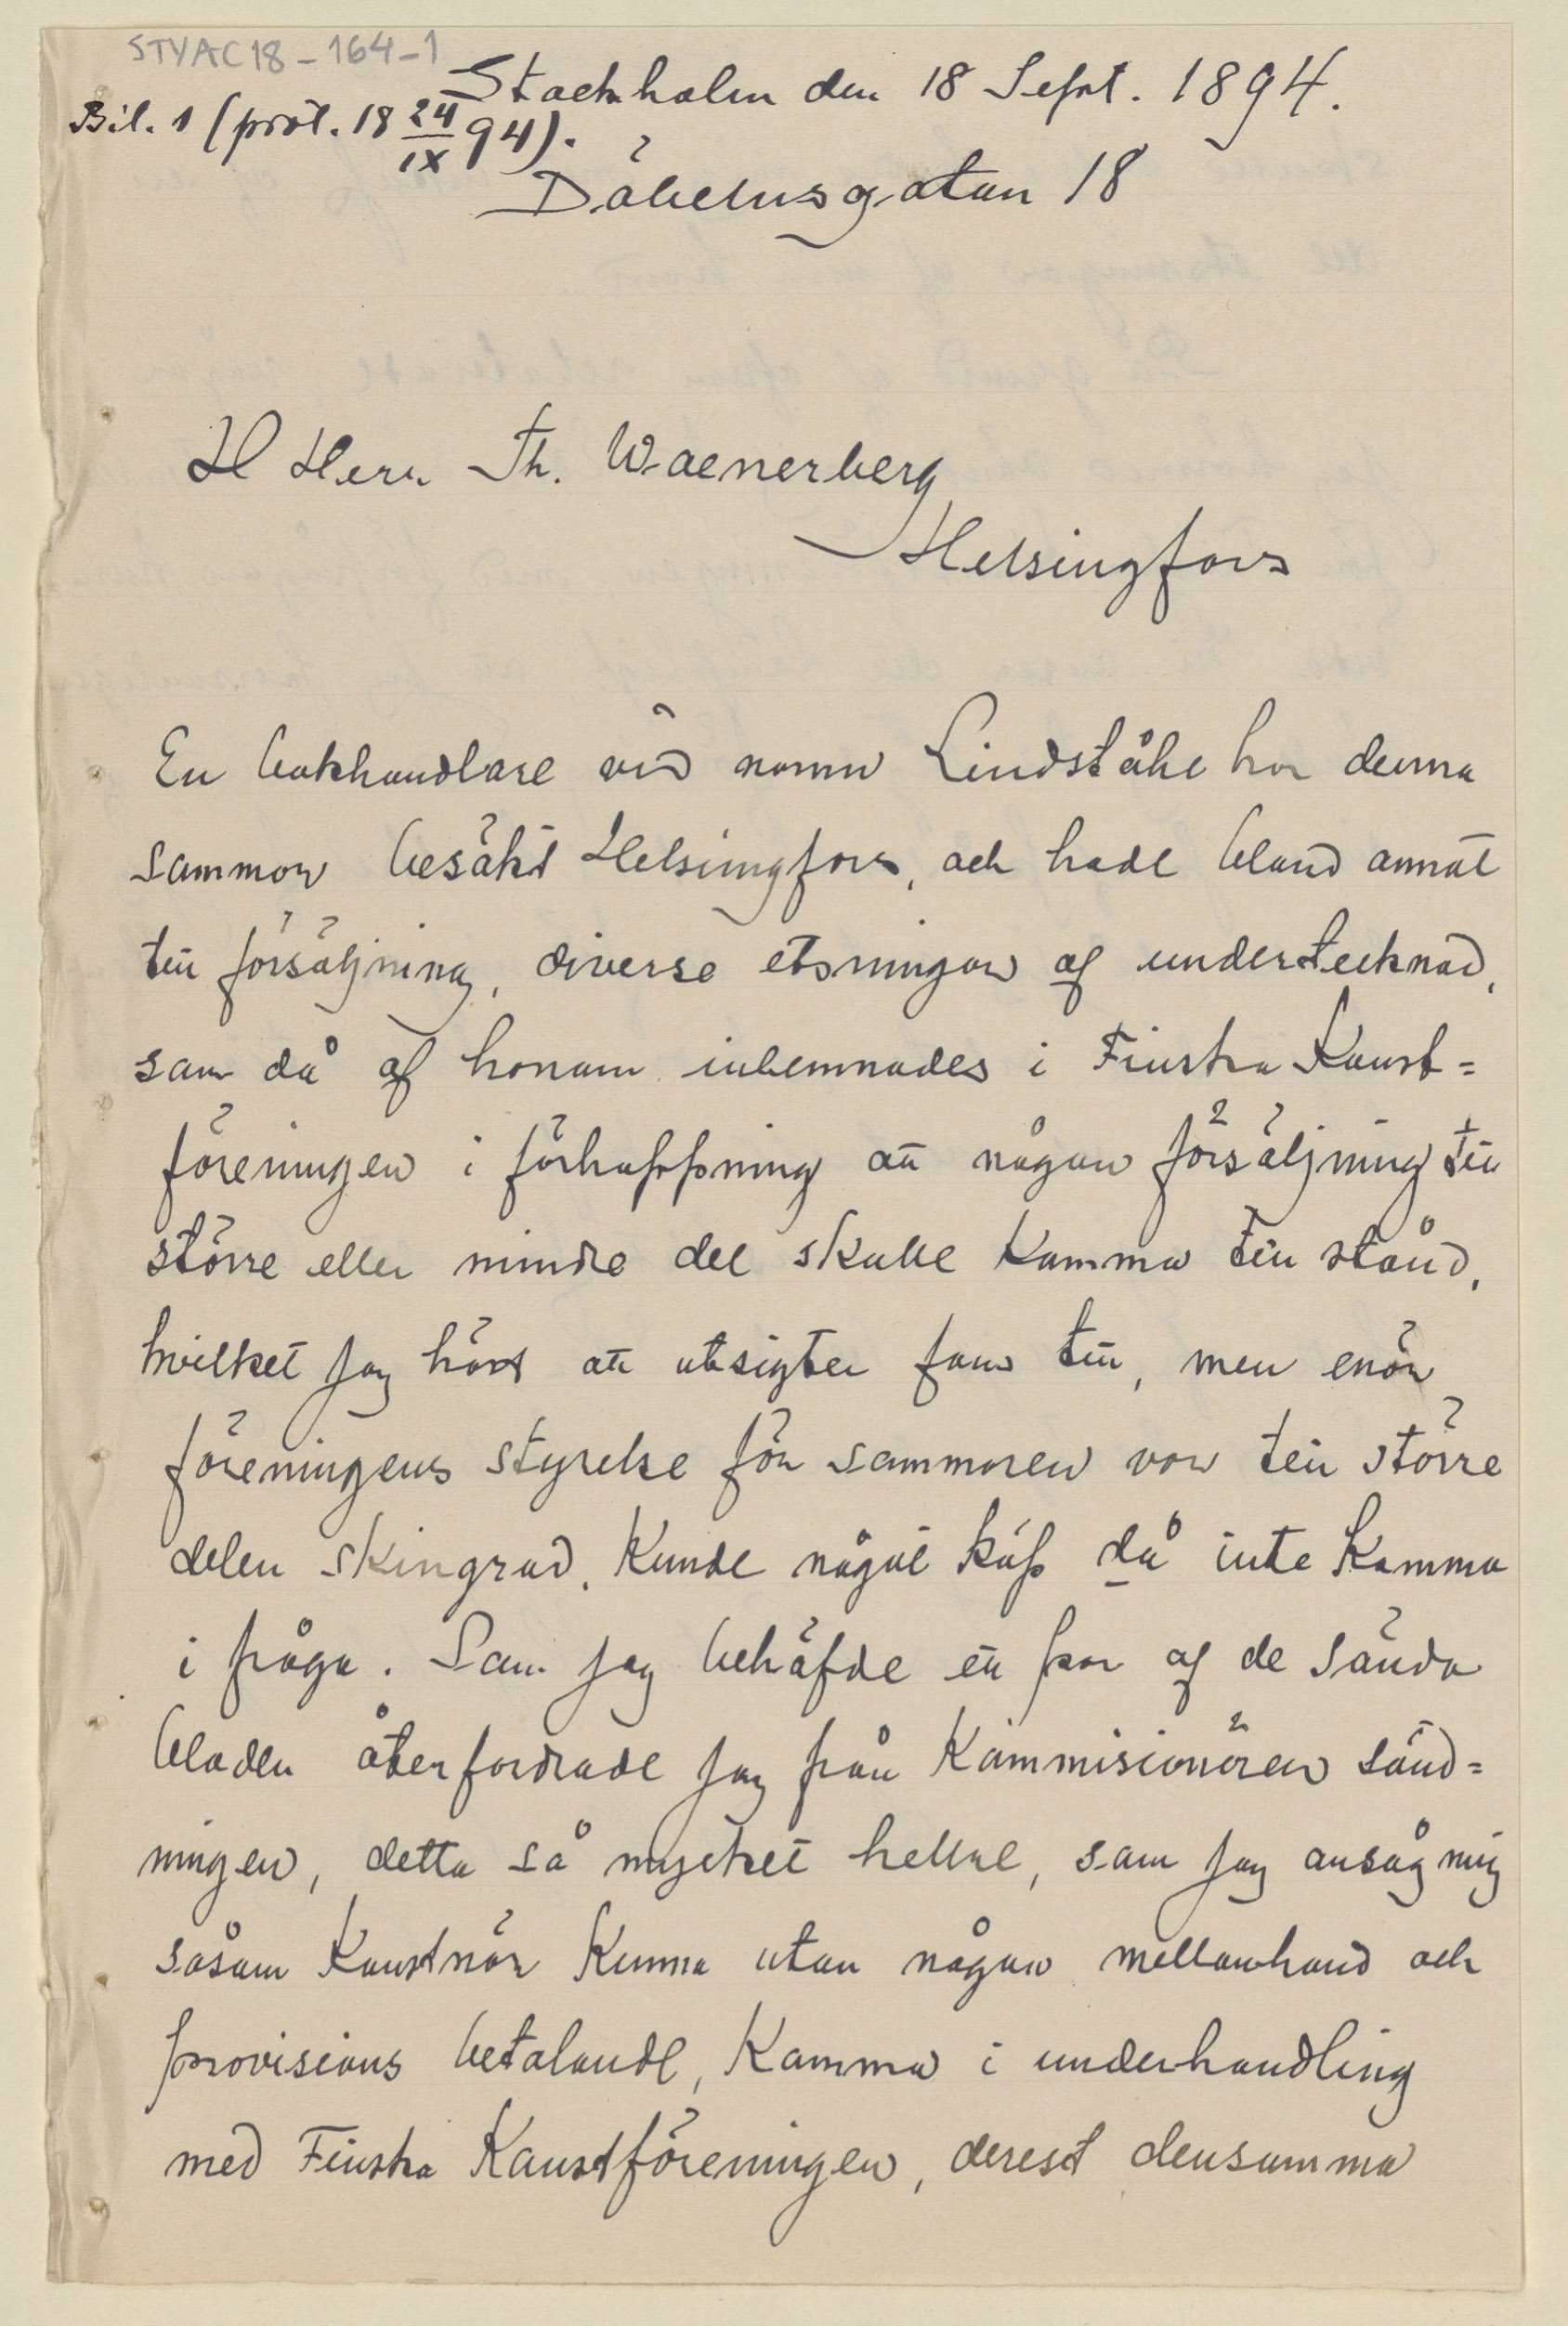 STYAC18-164-1
Stockholm den 18 Sept. 1894.
Bil. 1 (prot. 18 24/IX 94).
Döbelnsgatan 18
H Herr Th. Waenerberg
Helsingfors
En bokhandlare vid namn Lindståhl har denna
sommar besökt Helsingfors, och hade bland annat
till försäljning, diverse etsningar af undertecknad,
som då af honom inlemnades i Finska Konst=
föreningen i förhoppning att någon försäljning till
större eller mindre del skulle komma till stånd,
hvilket jag hört att utsigter fans till, men enär
föreningens styrelse för sommaren var till större
delen skingrad, kunde något köp då inte komma
i fråga. Som jag behöfde ett par af de sända
bladen återfordrade jag från Kommisionären sänd=
ningen, detta så mycket hellre, som jag ansåg mig
såsom Konstnär kunna utan någon mellanhand och
provisions betalande, komma i underhandling
med Finska Konstföreningen, derest densamma